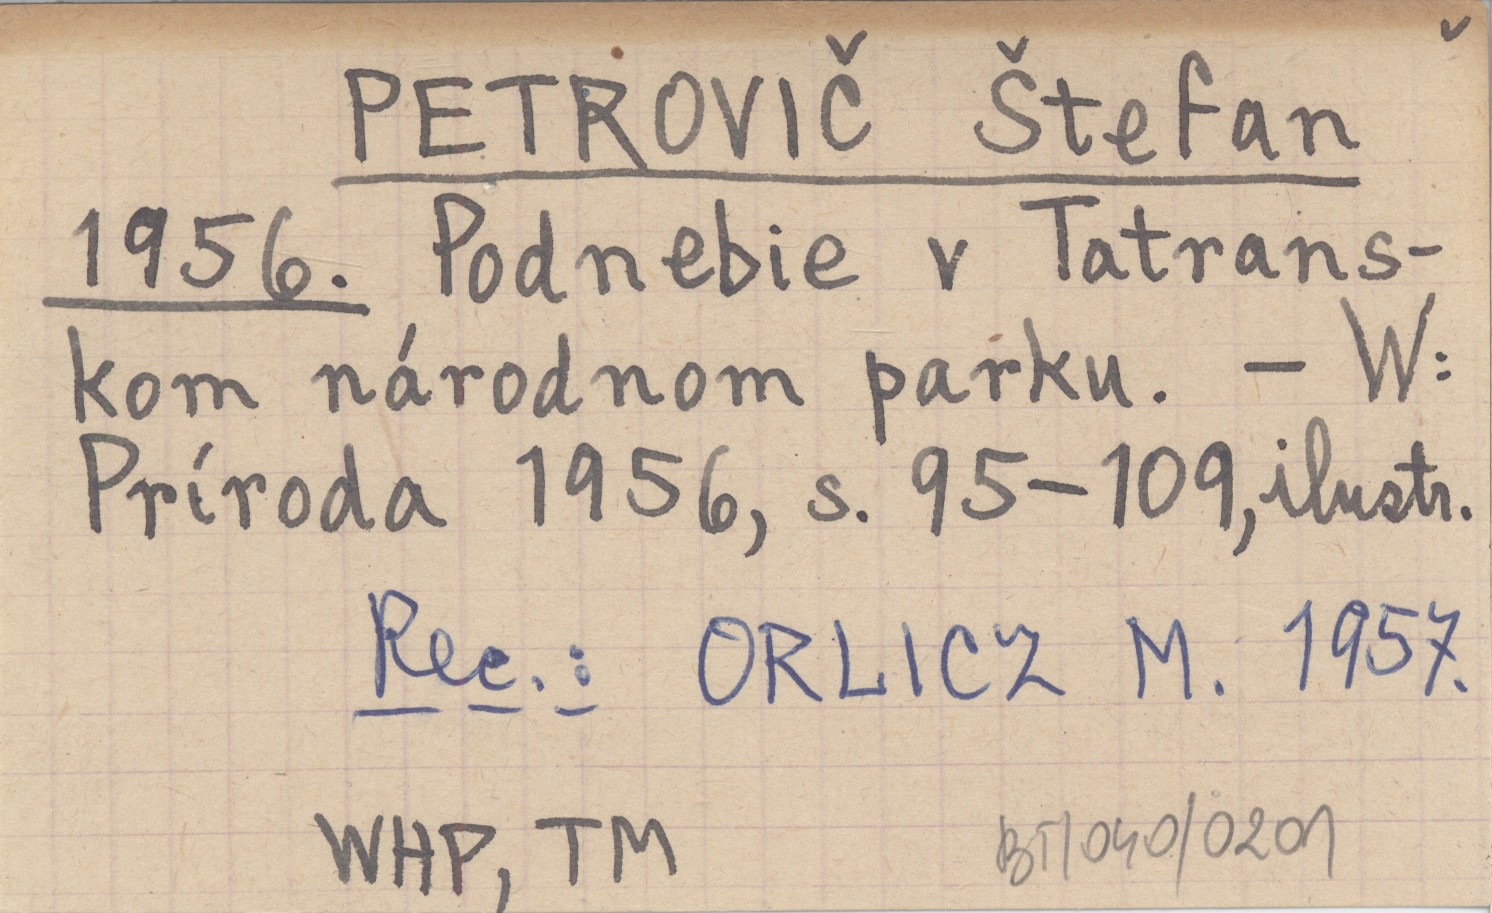 PETROVIČ Štefan
1956. Podnebie v Tatrans-
kom národnom parku. – W:
Príroda 1956, s. 95–109, ilustr.
Rec.: ORLICZ M. 1957.
WHP, TM
BT/040/0201